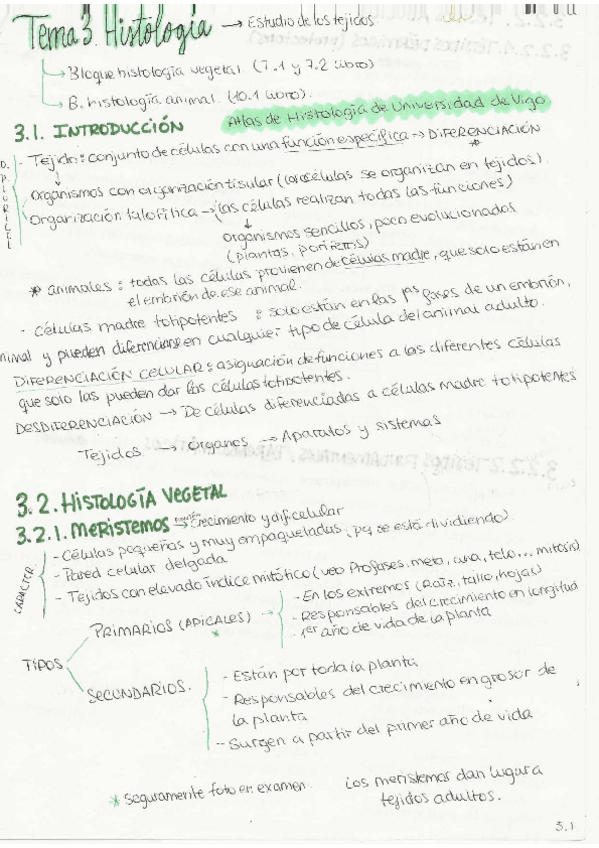 Tema 3. Histología → Estudio de los tejidos
→ Bloque histología vegetal (7.1 y 7.2 libro)
→ B. histología animal (10.1 libro).
Atlas de Histología de Universidad de Vigo
3.1. INTRODUCCIÓN
- Tejido: conjunto de células con una función específica → DIFERENCIACIÓN
*
O. PLURICEL
organismos con organización tisular (las células se organizan en tejidos).
Organización talofítica → (las células realizan todas las funciones)
organismos sencillos, poco evolucionados
(plantas, poríferos)
* animales: todas las células provienen de células madre, que solo están en
el embrión de ese animal.
- células madre totipotentes: solo están en las 1as fases de un embrión,
animal y pueden diferenciarse en cualquier tipo de célula del animal adulto.
DIFERENCIACIÓN CELULAR: asignación de funciones a las diferentes células
que solo las pueden dar las células totipotentes.
DESDIFERENCIACIÓN → De células diferenciadas a células madre totipotentes
Tejidos → órganos → Aparatos y sistemas
3.2. HISTOLOGÍA VEGETAL
3.2.1. MERISTEMOS → Crecimiento y dif. celular
CARACTER.
- Células pequeñas y muy empaquetadas (pq se está dividiendo)
- Pared celular delgada
- Tejidos con elevado índice mitótico (veo Profases, meta, ana, telo... mitosis)
TIPOS
PRIMARIOS (APICALES) →
*
- En los extremos (Raíz, tallo, hojas)
- Responsables del crecimiento en longitud
- 1er año de vida de la planta
SECUNDARIOS.
- Están por toda la planta
- Responsables del crecimiento en grosor de
la planta
- Surgen a partir del primer año de vida
* Seguramente foto en examen.
Los meristemos dan lugar a
tejidos adultos.
3.1